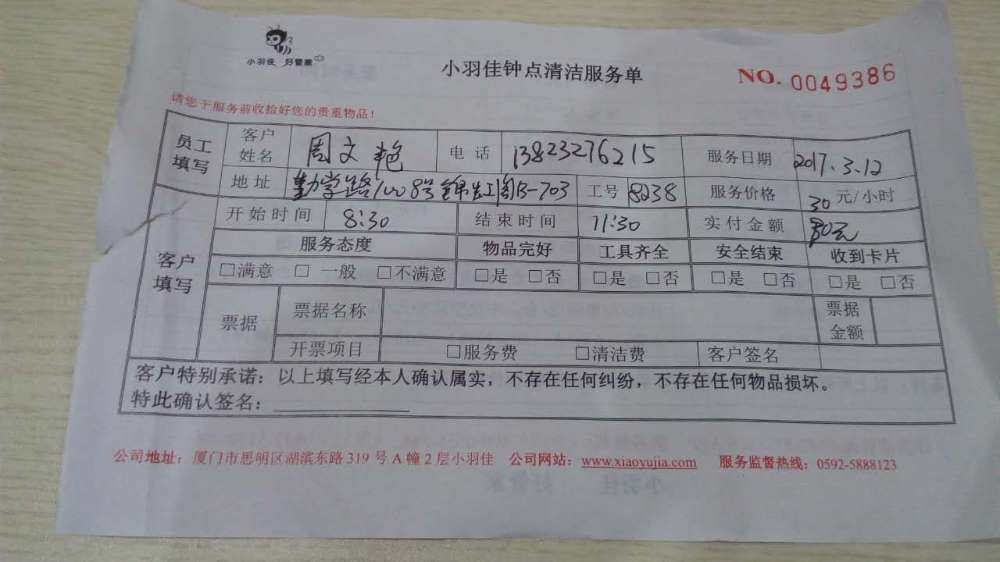 小羽佳 好管家
小羽佳钟点清洁服务单
NO. 0049386
请您于服务前收捡好您的贵重物品!
员工填写 客户姓名 周文艳 电话 13823276215 服务日期 2017.3.12
地址 勤学路1008号锦虹阁B-703 工号 8238 服务价格 30元/小时
客户填写 开始时间 8:30 结束时间 11:30 实付金额 元
服务态度 物品完好 工具齐全 安全结束 收到卡片
□满意 □一般 □不满意 □是 □否 □是 □否 □是 □否 □是 □否
票据 票据名称 票据金额
开票项目 □服务费 □清洁费 客户签名
客户特别承诺：以上填写经本人确认属实，不存在任何纠纷，不存在任何物品损坏。
特此确认签名：
公司地址：厦门市思明区湖滨东路319号A幢2层小羽佳 公司网站：www.xiaoyujia.com 服务监督热线：0592-5888123